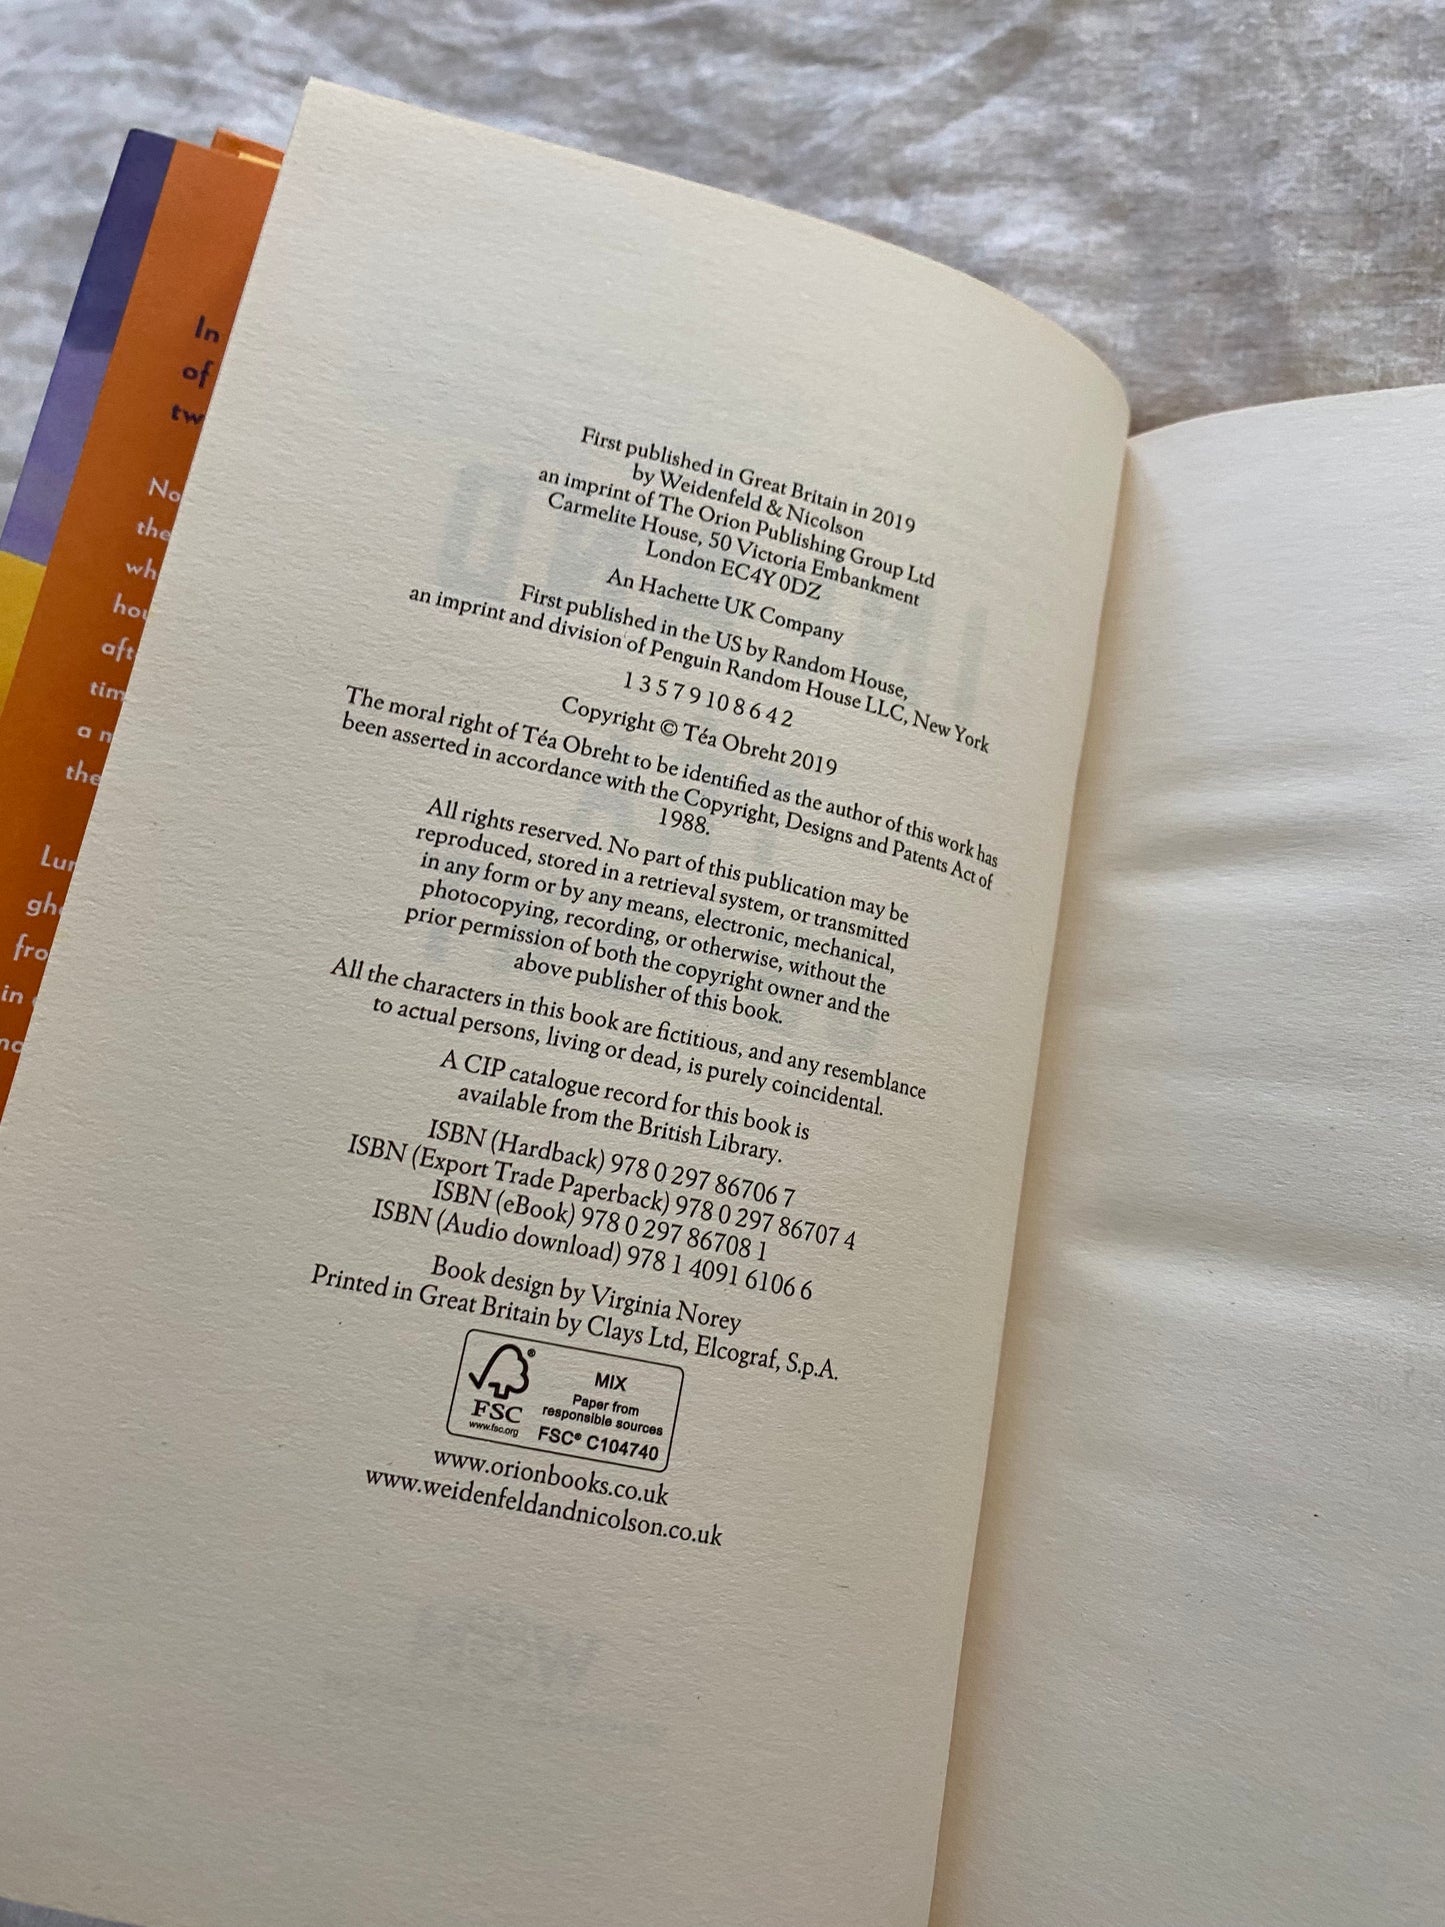 In
of
tw
No
the
wh
hou
aft
tim
a m
the
Lun
gho
fro
in
First published in Great Britain in 2019
by Weidenfeld & Nicolson
an imprint of The Orion Publishing Group Ltd
Carmelite House, 50 Victoria Embankment
London EC4Y 0DZ
An Hachette UK Company
First published in the US by Random House,
an imprint and division of Penguin Random House LLC, New York
1 3 5 7 9 10 8 6 4 2
Copyright © Téa Obreht 2019
The moral right of Téa Obreht to be identified as the author of this work has
been asserted in accordance with the Copyright, Designs and Patents Act of
1988.
All rights reserved. No part of this publication may be
reproduced, stored in a retrieval system, or transmitted
in any form or by any means, electronic, mechanical,
photocopying, recording, or otherwise, without the
prior permission of both the copyright owner and the
above publisher of this book.
All the characters in this book are fictitious, and any resemblance
to actual persons, living or dead, is purely coincidental.
A CIP catalogue record for this book is
available from the British Library.
ISBN (Hardback) 978 0 297 86706 7
ISBN (Export Trade Paperback) 978 0 297 86707 4
ISBN (eBook) 978 0 297 86708 1
ISBN (Audio download) 978 1 4091 6106 6
Book design by Virginia Norey
Printed in Great Britain by Clays Ltd, Elcograf, S.p.A.
MIX
Paper from
responsible sources
FSC® C104740
FSC
www.fsc.org
www.orionbooks.co.uk
www.weidenfeldandnicolson.co.uk